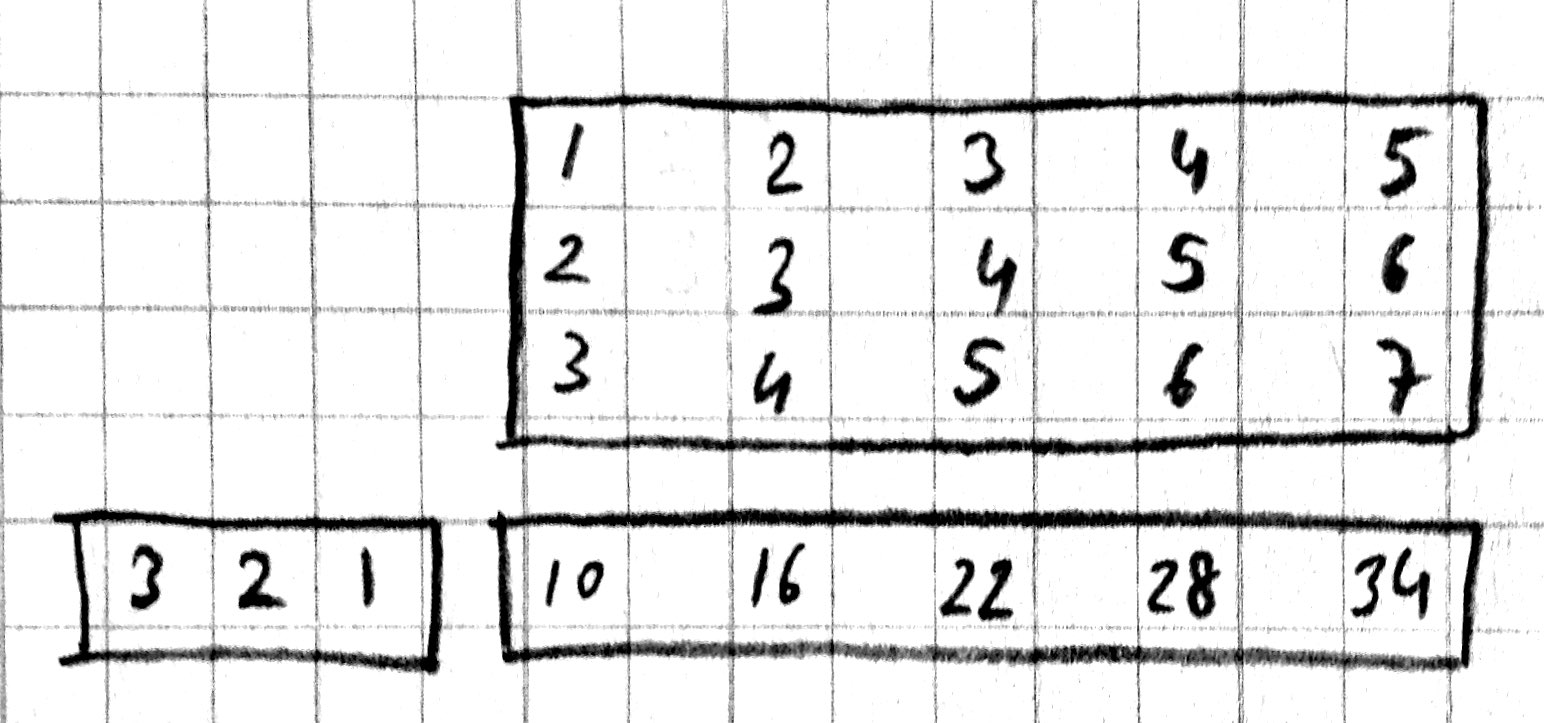 1 2 3 4 5
2 3 4 5 6
3 4 5 6 7
3 2 1 10 16 22 28 34